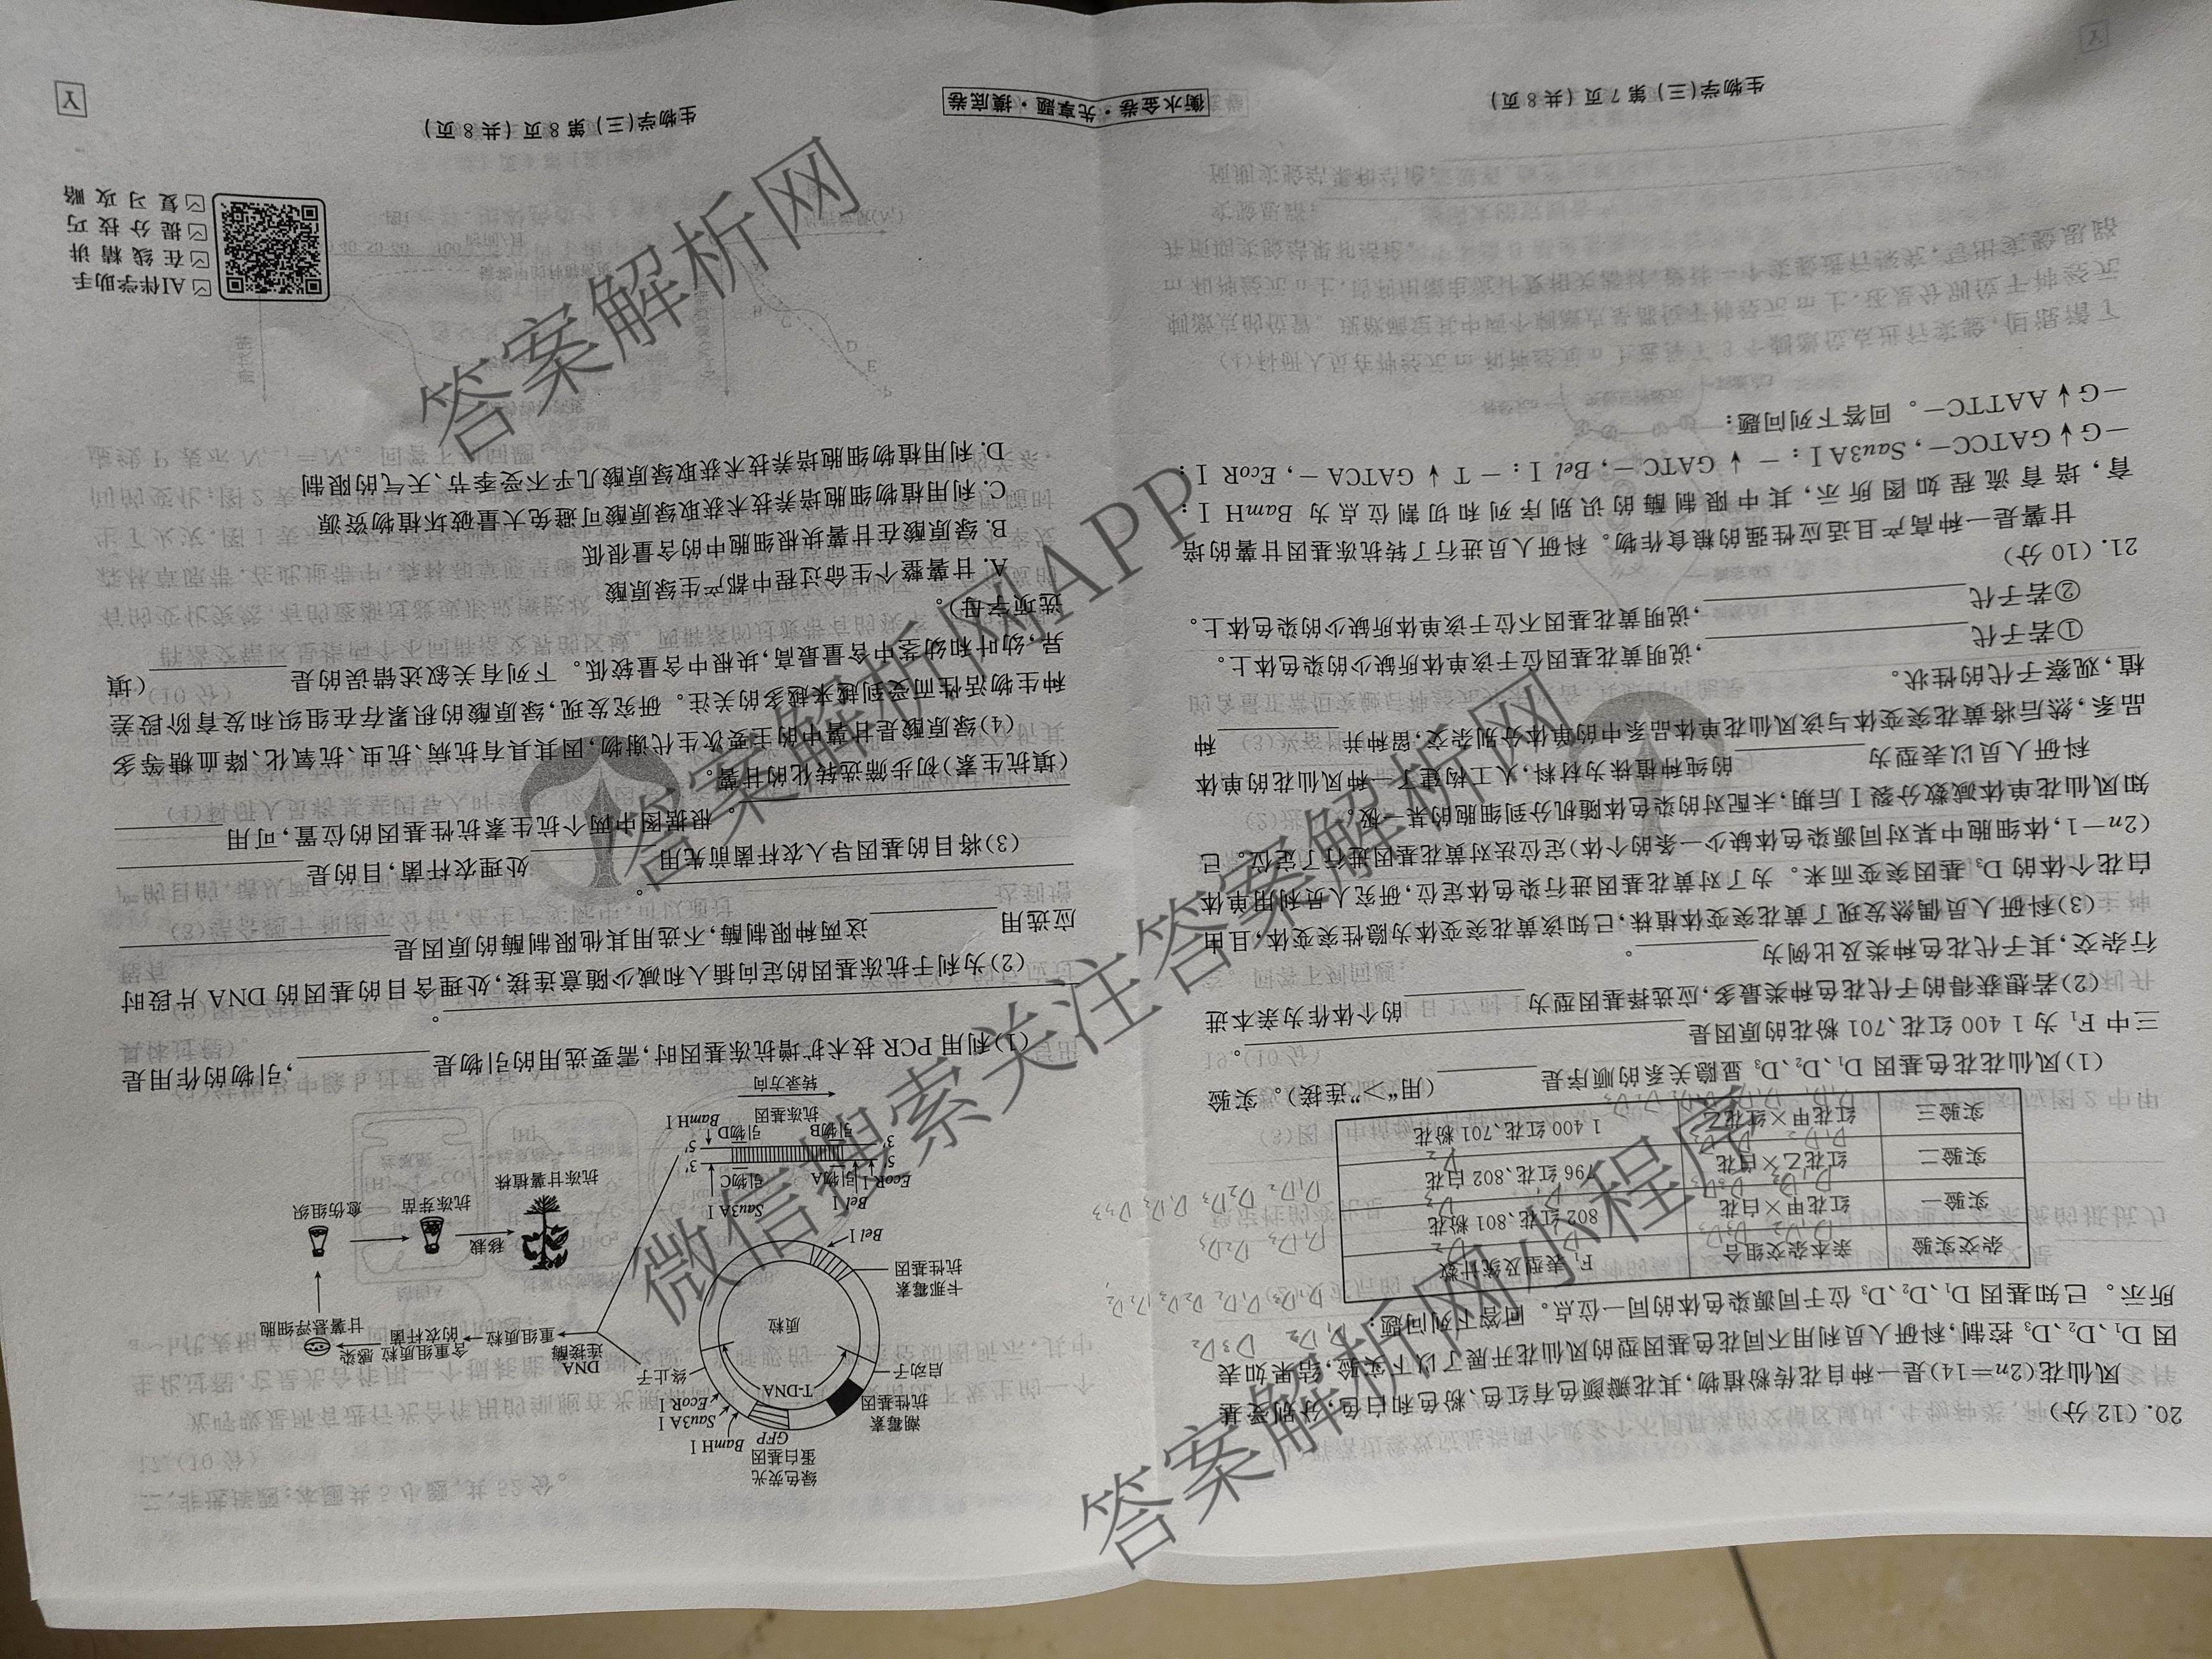 20. (12 分)
凤仙花(2n=14)是一种自花传粉植物,其花瓣颜色有红色、粉色和白色,分别受基
因 D₁、D₂、D₃ 控制,科研人员利用不同花色基因型的凤仙花开展了以下实验,结果如表
所示。已知基因 D₁、D₂、D₃ 位于同源染色体的同一位点。回答下列问题:
杂交实验 亲本杂交组合 F₁ 表型及统计数
实验一 红花甲×白花 802 红花、801 粉花
实验二 红花乙×白花 796 红花、802 白花
实验三 红花甲×红花乙 1 400 红花、701 粉花
(1)凤仙花花色基因 D₁、D₂、D₃ 显隐关系的顺序是________(用“>”连接)。实验
三中 F₁ 为 1 400 红花、701 粉花的原因是________。
(2)若想获得的子代花色种类最多,应选择基因型为________的个体作为亲本进
行杂交,其子代花色种类及比例为________。
(3)科研人员偶然发现了黄花突变体植株,已知该黄花突变体为隐性突变体,且由
白花个体的 D₃ 基因突变而来。为了对黄花基因进行染色体定位,研究人员利用单体
(2n-1,体细胞中某对同源染色体缺少一条的个体)定位法对黄花基因进行了定位。已
知凤仙花单体减数分裂Ⅰ后期,未配对的染色体随机分到细胞的某一极。
科研人员以表型为________的纯种植株为材料,人工构建了一种凤仙花的单体
品系,然后将黄花突变体与该凤仙花单体品系中的单体分别杂交,留种并________种
植,观察子代的性状。
①若子代________,说明黄花基因位于该单体所缺少的染色体上。
②若子代________,说明黄花基因不位于该单体所缺少的染色体上。
21. (10 分)
甘薯是一种高产且适应性强的粮食作物。科研人员进行了转抗冻基因甘薯的培
育,培育流程如图所示,其中限制酶的识别序列和切割位点为 BamH Ⅰ:
—G↓GATCC—,Sau3A Ⅰ:—↓GATC—,Bel Ⅰ:—T↓GATCA—,EcoR Ⅰ:
—G↓AATTC—。回答下列问题:
生物学(三) 第 7 页(共 8 页)
衡水金卷·先享题·摸底卷
绿色荧光
蛋白基因
GFP
BamH Ⅰ
Sau3A Ⅰ
EcoR Ⅰ
终止子
潮霉素
抗性基因
启动子
T-DNA
质粒
卡那霉素
抗性基因
Bel Ⅰ
DNA
连接酶
重组质粒
含重组质粒
的农杆菌
感染
甘薯悬浮细胞
愈伤组织
抗冻芽苗
移栽
抗冻甘薯植株
Bel Ⅰ
Sau3A Ⅰ
EcoR Ⅰ
引物A
引物C
5′
3′
3′
5′
引物B
引物D
BamH Ⅰ
抗冻基因
转录方向
(1)利用 PCR 技术扩增抗冻基因时,需要选用的引物是________,引物的作用是
________。
(2)为利于抗冻基因的定向插入和减少随意连接,处理含目的基因的 DNA 片段时
应选用________这两种限制酶,不选用其他限制酶的原因是________
________。
(3)将目的基因导入农杆菌前先用________处理农杆菌,目的是________
________。根据图中两个抗生素抗性基因的位置,可用________
(填抗生素)初步筛选转化的甘薯。
(4)绿原酸是甘薯中的主要次生代谢物,因其具有抗病、抗虫、抗氧化、降血糖等多
种生物活性而受到越来越多的关注。研究发现,绿原酸的积累存在组织和发育阶段差
异,幼叶和幼茎中含量最高,块根中含量较低。下列有关叙述错误的是________(填
选项字母)。
A. 甘薯整个生命过程中都产生绿原酸
B. 绿原酸在甘薯块根细胞中的含量很低
C. 利用植物细胞培养技术获取绿原酸可避免大量破坏植物资源
D. 利用植物细胞培养技术获取绿原酸几乎不受季节、天气的限制
AI伴学助手
在线精讲
提分技巧
复习攻略
生物学(三) 第 8 页(共 8 页)
Y
答案解析网
答案解析网APP
微信搜索关注答案解析网
答案解析网小程序